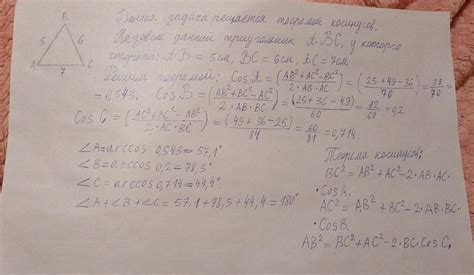 B
5 6
A 7 C
Данная задача решается теоремой косинусов.
Назовем данный треугольник ABC, у которого
стороны: AB = 5см, BC = 6см, AC = 7см
Решаем теоремой: Cos A = (AB²+AC²-BC² / 2·AB·AC) = (25+49-36 / 70) = 38/70 =
= 0,543. Cos B = (AB²+BC²-AC² / 2·AB·BC) = (25+36-49) / 60 = 12/60 = 0,2
Cos C = (AC²+BC²-AB² / 2·AC·BC) = (49+36-25) / 84 = 60/81 = 0,714
∠A = arccos 0,543 = 57,1°
∠B = arccos 0,2 = 78,5°
∠C = arccos 0,714 = 44,4°
∠A + ∠B + ∠C = 57,1 + 78,5 + 44,4 = 180°
Теорема косинусов:
BC² = AB² + AC² - 2·AB·AC·
·CosA.
AC² = AB² + BC² - 2·AB·BC·
·CosB.
AB² = BC² + AC² - 2·BC·CosC.